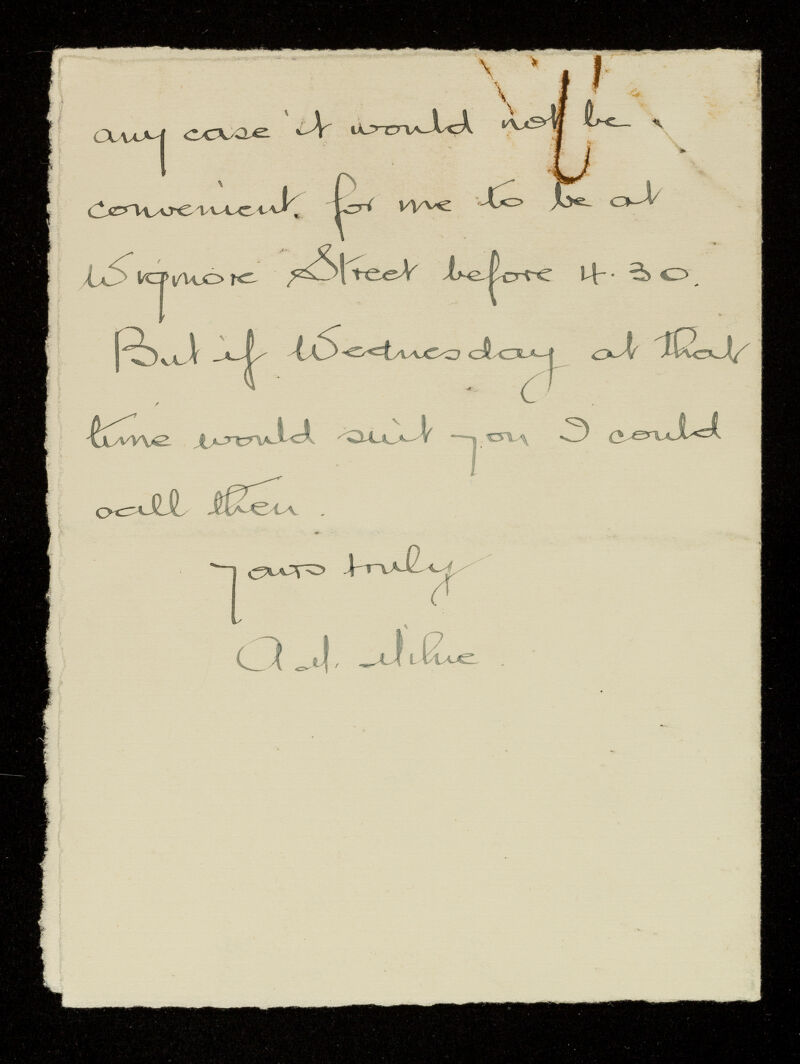 any case it would not be
convenient. for me to be at
Wigmore Street before 4.30.
But if Wednesday at that
time would suit you I could
call then.
Yours truly
A. M. Milne